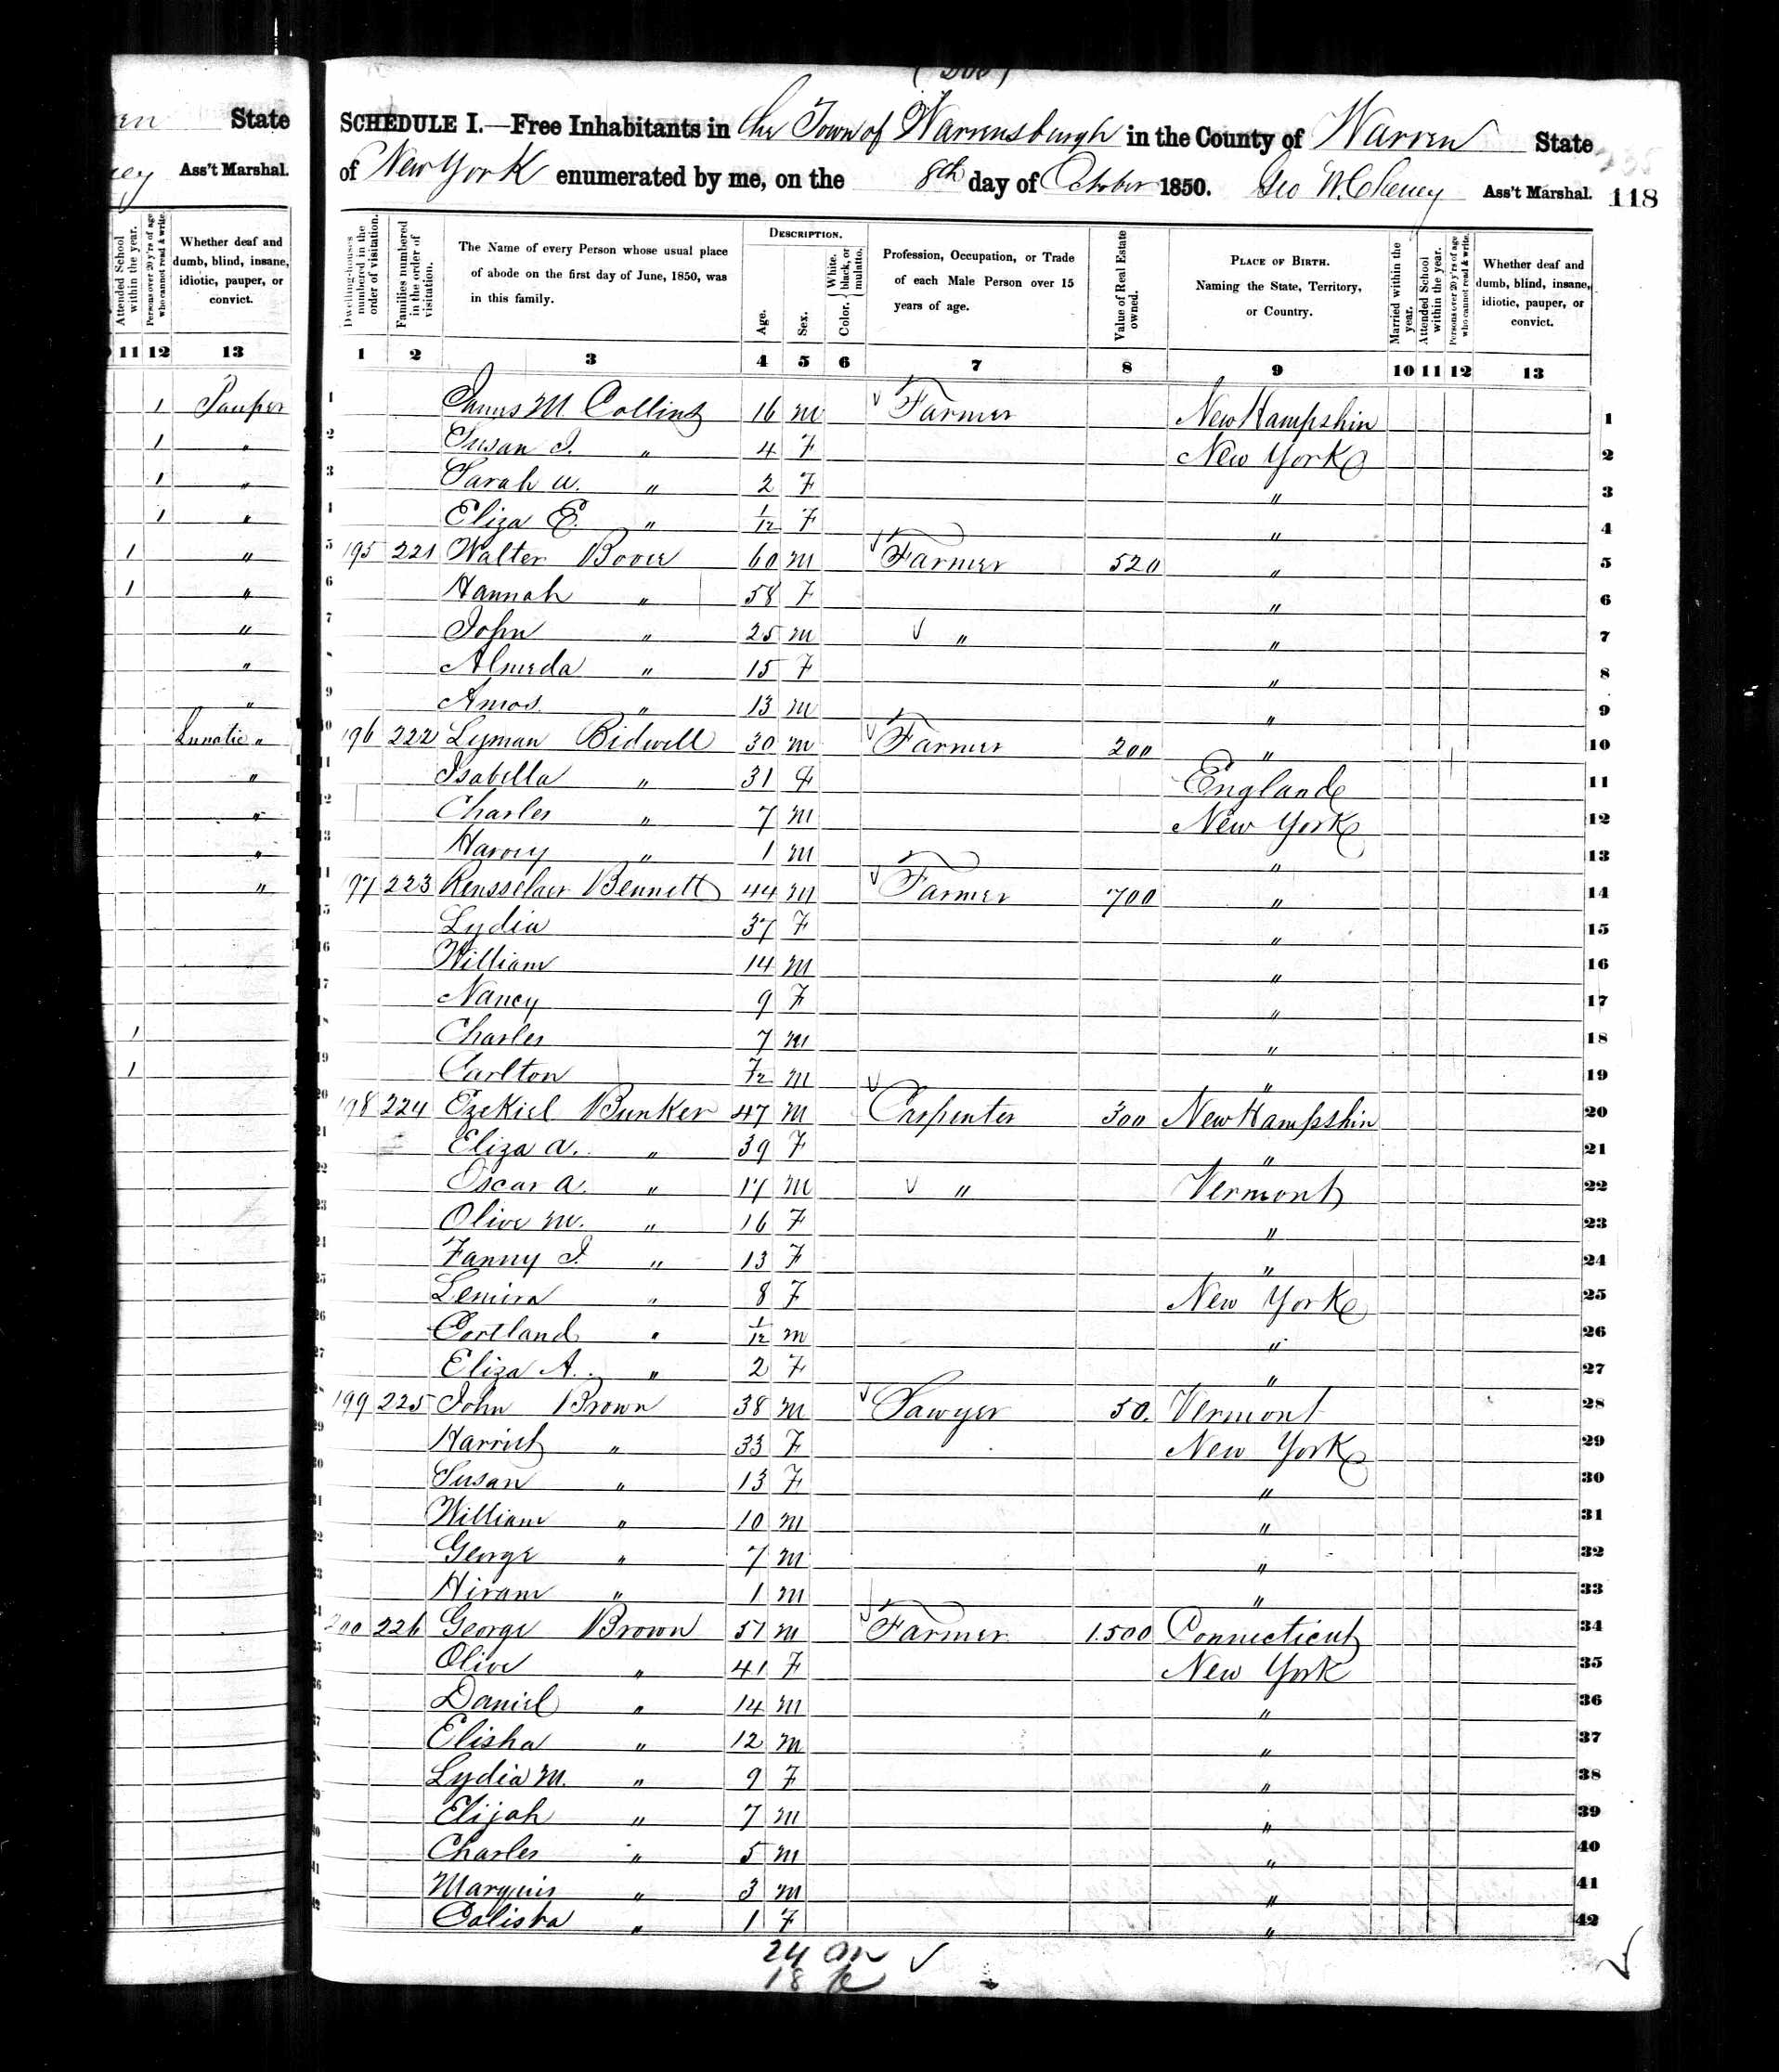 en State
ey Ass't Marshal.
Attended School within the year.
Persons over 20 y'rs of age who cannot read & write.
Whether deaf and dumb, blind, insane, idiotic, pauper, or convict.
11 12 13
1 Pauper
1 "
1 "
1 "
1 "
1 "
"
"
"
Lunatic "
"
"
"
"
1
1
SCHEDULE I.—Free Inhabitants in the Town of Warrensburgh in the County of Warren State
of New York enumerated by me, on the 8th day of October 1850. Geo W. Cheney Ass't Marshal. 118
Dwelling-houses numbered in the order of visitation.
Families numbered in the order of visitation.
The Name of every Person whose usual place of abode on the first day of June, 1850, was in this family.
DESCRIPTION.
Age.
Sex.
Color. { White, black, or mulatto.
Profession, Occupation, or Trade of each Male Person over 15 years of age.
Value of Real Estate owned.
PLACE OF BIRTH.
Naming the State, Territory, or Country.
Married within the year.
Attended School within the year.
Persons over 20 y'rs of age who cannot read & write.
Whether deaf and dumb, blind, insane, idiotic, pauper, or convict.
1 2 3 4 5 6 7 8 9 10 11 12 13
1 James M. Collins 16 m Farmer New Hampshire 1
2 Susan J. " 4 F New York 2
3 Sarah A. " 2 F " 3
Eliza E. " 1/12 F " 4
5 195 221 Walter 60 m Farmer 520 " 5
6 Hannah " 58 F " 6
7 John " 25 m " " 7
Almeda " 15 F " 8
9 Amos " 13 m " 9
10 196 222 Lyman Bidwell 30 m Farmer 200 " 10
11 Isabella " 31 F England 11
12 Charles " 7 m New York 12
13 Harvey " 1 m " 13
197 223 Rensselaer Bennett 44 m Farmer 700 " 14
15 Lydia 37 F " 15
16 William 14 m " 16
17 Nancy 9 F " 17
18 Charles 7 m " 18
19 Carlton m " 19
20 198 224 Ezekiel Bunker 47 m Carpenter 300 New Hampshire 20
21 Eliza A. " 39 F " 21
22 Oscar A. " 17 m " Vermont 22
23 Olive M. " 16 F " 23
Fanny J. " 13 F " 24
25 Lemira " 8 F New York 25
26 Cortland " 1/12 m " 26
27 Eliza A. " 2 F " 27
199 225 John Brown 38 m Sawyer 50. Vermont 28
29 Harriet " 33 F New York 29
30 Susan " 13 F " 30
31 William " 10 m " 31
32 George " 7 m " 32
33 Hiram " 1 m " 33
200 226 George Brown 51 m Farmer 1.500 Connecticut 34
35 Olive " 41 F New York 35
36 Daniel " 14 m " 36
37 Elisha " 12 m " 37
Lydia M. " 9 F " 38
39 Elijah " 7 m " 39
40 Charles " 5 m " 40
41 Marquis " 3 m " 41
42 Calista " 1 F " 42
24 m
18